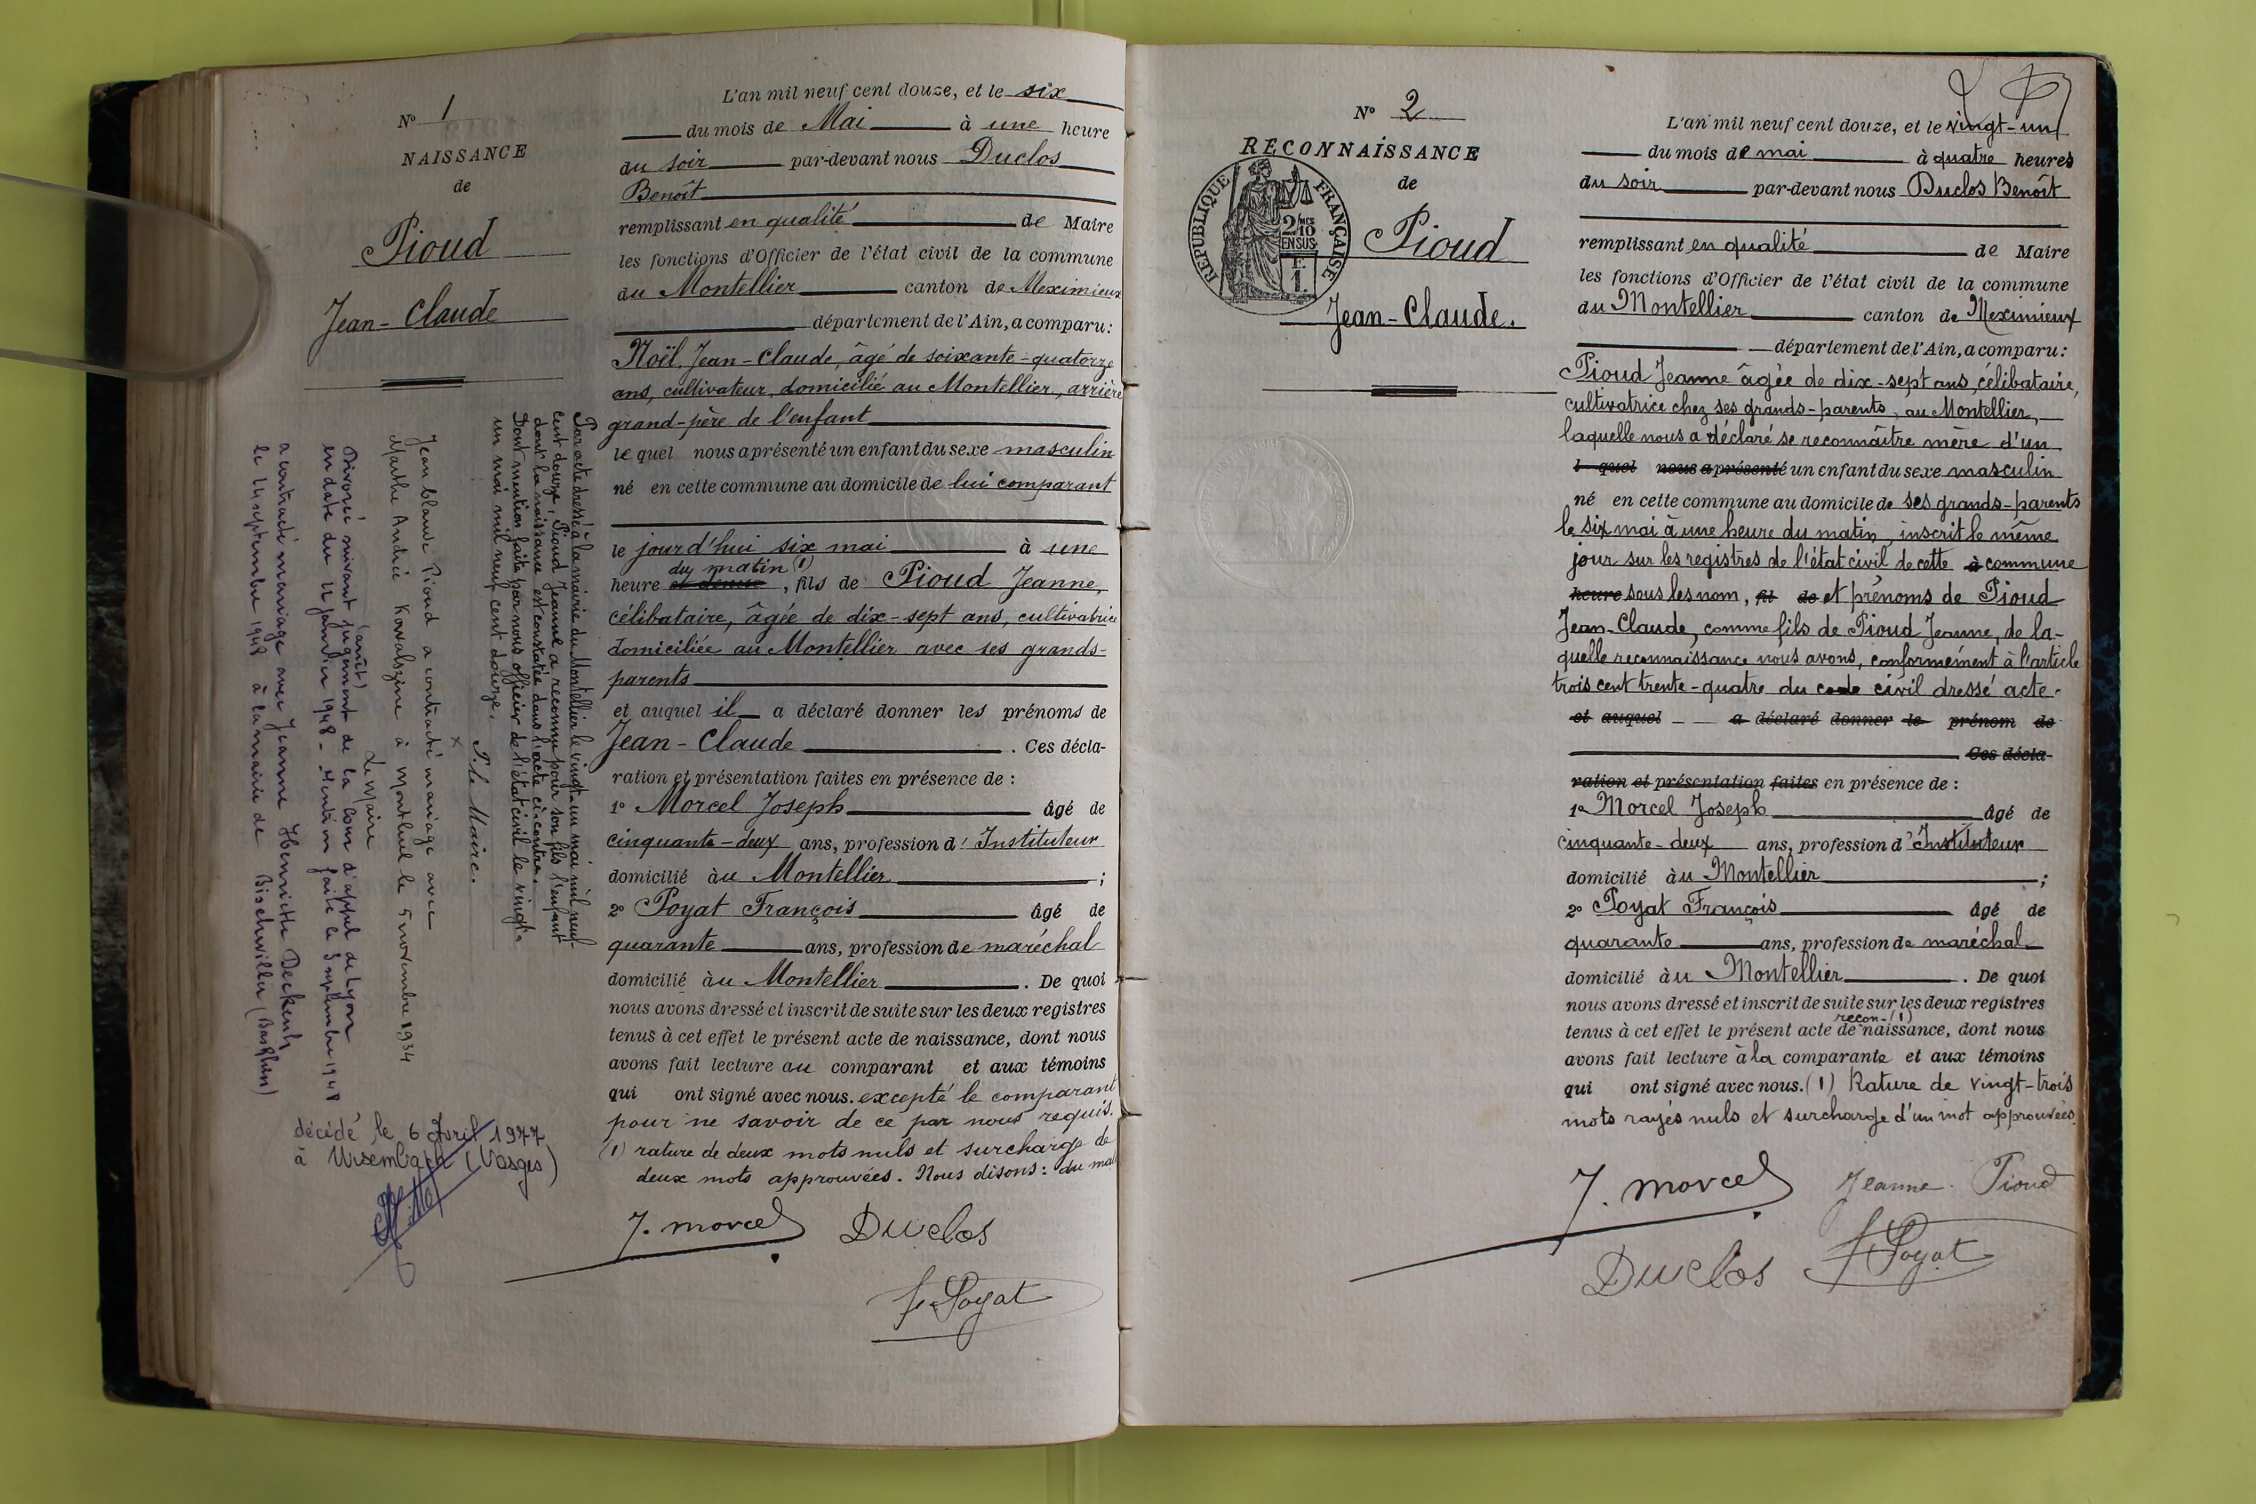 N° 1
NAISSANCE
de
Pioud
Jean-Claude
L'an mil neuf cent douze, et le six
du mois de Mai à une heure
du soir par-devant nous Duclos
Benoît
remplissant en qualité de Maire
les fonctions d'Officier de l'état civil de la commune
du Montellier canton de Meximieux
département de l'Ain, a comparu:
Noël, Jean-Claude, âgé de soixante-quatorze
ans, cultivateur, domicilié au Montellier, arrière
grand-père de l'enfant
le quel nous a présenté un enfant du sexe masculin
né en cette commune au domicile de lui comparant
le jourd'hui six mai à une
du matin (1)
heure et demie, fils de Pioud Jeanne,
célibataire, âgée de dix-sept ans, cultivatrice
domiciliée au Montellier avec ses grands-
parents
et auquel il a déclaré donner les prénoms de
Jean-Claude. Ces décla-
ration et présentation faites en présence de :
1° Morcel Joseph âgé de
cinquante-deux ans, profession d'Instituteur
domicilié àu Montellier ;
2° Poyat François âgé de
quarante ans, profession de maréchal
domicilié àu Montellier. De quoi
nous avons dressé et inscrit de suite sur les deux registres
tenus à cet effet le présent acte de naissance, dont nous
avons fait lecture au comparant et aux témoins
qui ont signé avec nous. excepté le comparant
pour ne savoir de ce par nous requis.
(1) rature de deux mots nuls et surcharge de
deux mots approuvées. Nous disons: du mat
J. morcel Duclos
f. Poyat
Par acte dressé à la mairie du Montellier le vingt-un mai mil neuf
cent douze, Pioud Jeanne a reconnu pour son fils l'enfant
dont la naissance est constatée dans l'acte ci-contre.
Dont mention faite par nous officier de l'état civil le vingt-
un mai mil neuf cent douze.
P. le Maire.
Jean Claude Pioud a contracté mariage avec
Marthe Andrée Kowalszine à Montluel le 5 novembre 1934
Le Maire
(arrêt)
Divorcé suivant jugement de la Cour d'appel de Lyon
en date du 14 janvier 1948 - Mention faite le 5 septembre 1948
a contracté mariage avec Jeanne Henriette Deckert
le 14 septembre 1948 à la mairie de Bischwiller (Bas Rhin)
décédé le 6 Avril 1977
à Urisembach (Vosges)
N° 2
RECONNAISSANCE
de
RÉPUBLIQUE FRANÇAISE
2/10 EN SUS
F. 1.
Pioud
Jean-Claude.
L'an mil neuf cent douze, et le vingt-un
du mois de mai à quatre heures
du soir par-devant nous Duclos Benoît
remplissant en qualité de Maire
les fonctions d'Officier de l'état civil de la commune
du Montellier canton de Meximieux
département de l'Ain, a comparu:
Pioud Jeanne âgée de dix-sept ans, célibataire,
cultivatrice chez ses grands-parents, au Montellier,
laquelle nous a déclaré se reconnaître mère d'un
l quel nous a présenté un enfant du sexe masculin
né en cette commune au domicile de ses grands-parents
le six mai à une heure du matin, inscrit le même
jour sur les registres de l'état civil de cette à commune
heure sous les nom, fil de et prénoms de Pioud
Jean-Claude, comme fils de Pioud Jeanne, de la-
quelle reconnaissance nous avons, conformément à l'article
trois cent trente-quatre du code civil dressé acte.
et auquel a déclaré donner le prénom de
Ces décla-
ration et présentation faites en présence de :
1° Morcel Joseph âgé de
cinquante-deux ans, profession d'Instituteur
domicilié àu Montellier ;
2° Poyat François âgé de
quarante ans, profession de maréchal
domicilié àu Montellier. De quoi
nous avons dressé et inscrit de suite sur les deux registres
recon-(1)
tenus à cet effet le présent acte de naissance, dont nous
avons fait lecture à la comparante et aux témoins
qui ont signé avec nous. (1) Rature de vingt-trois
mots rayés nuls et surcharge d'un mot approuvées.
J. morcel Jeanne Pioud
Duclos f. Poyat